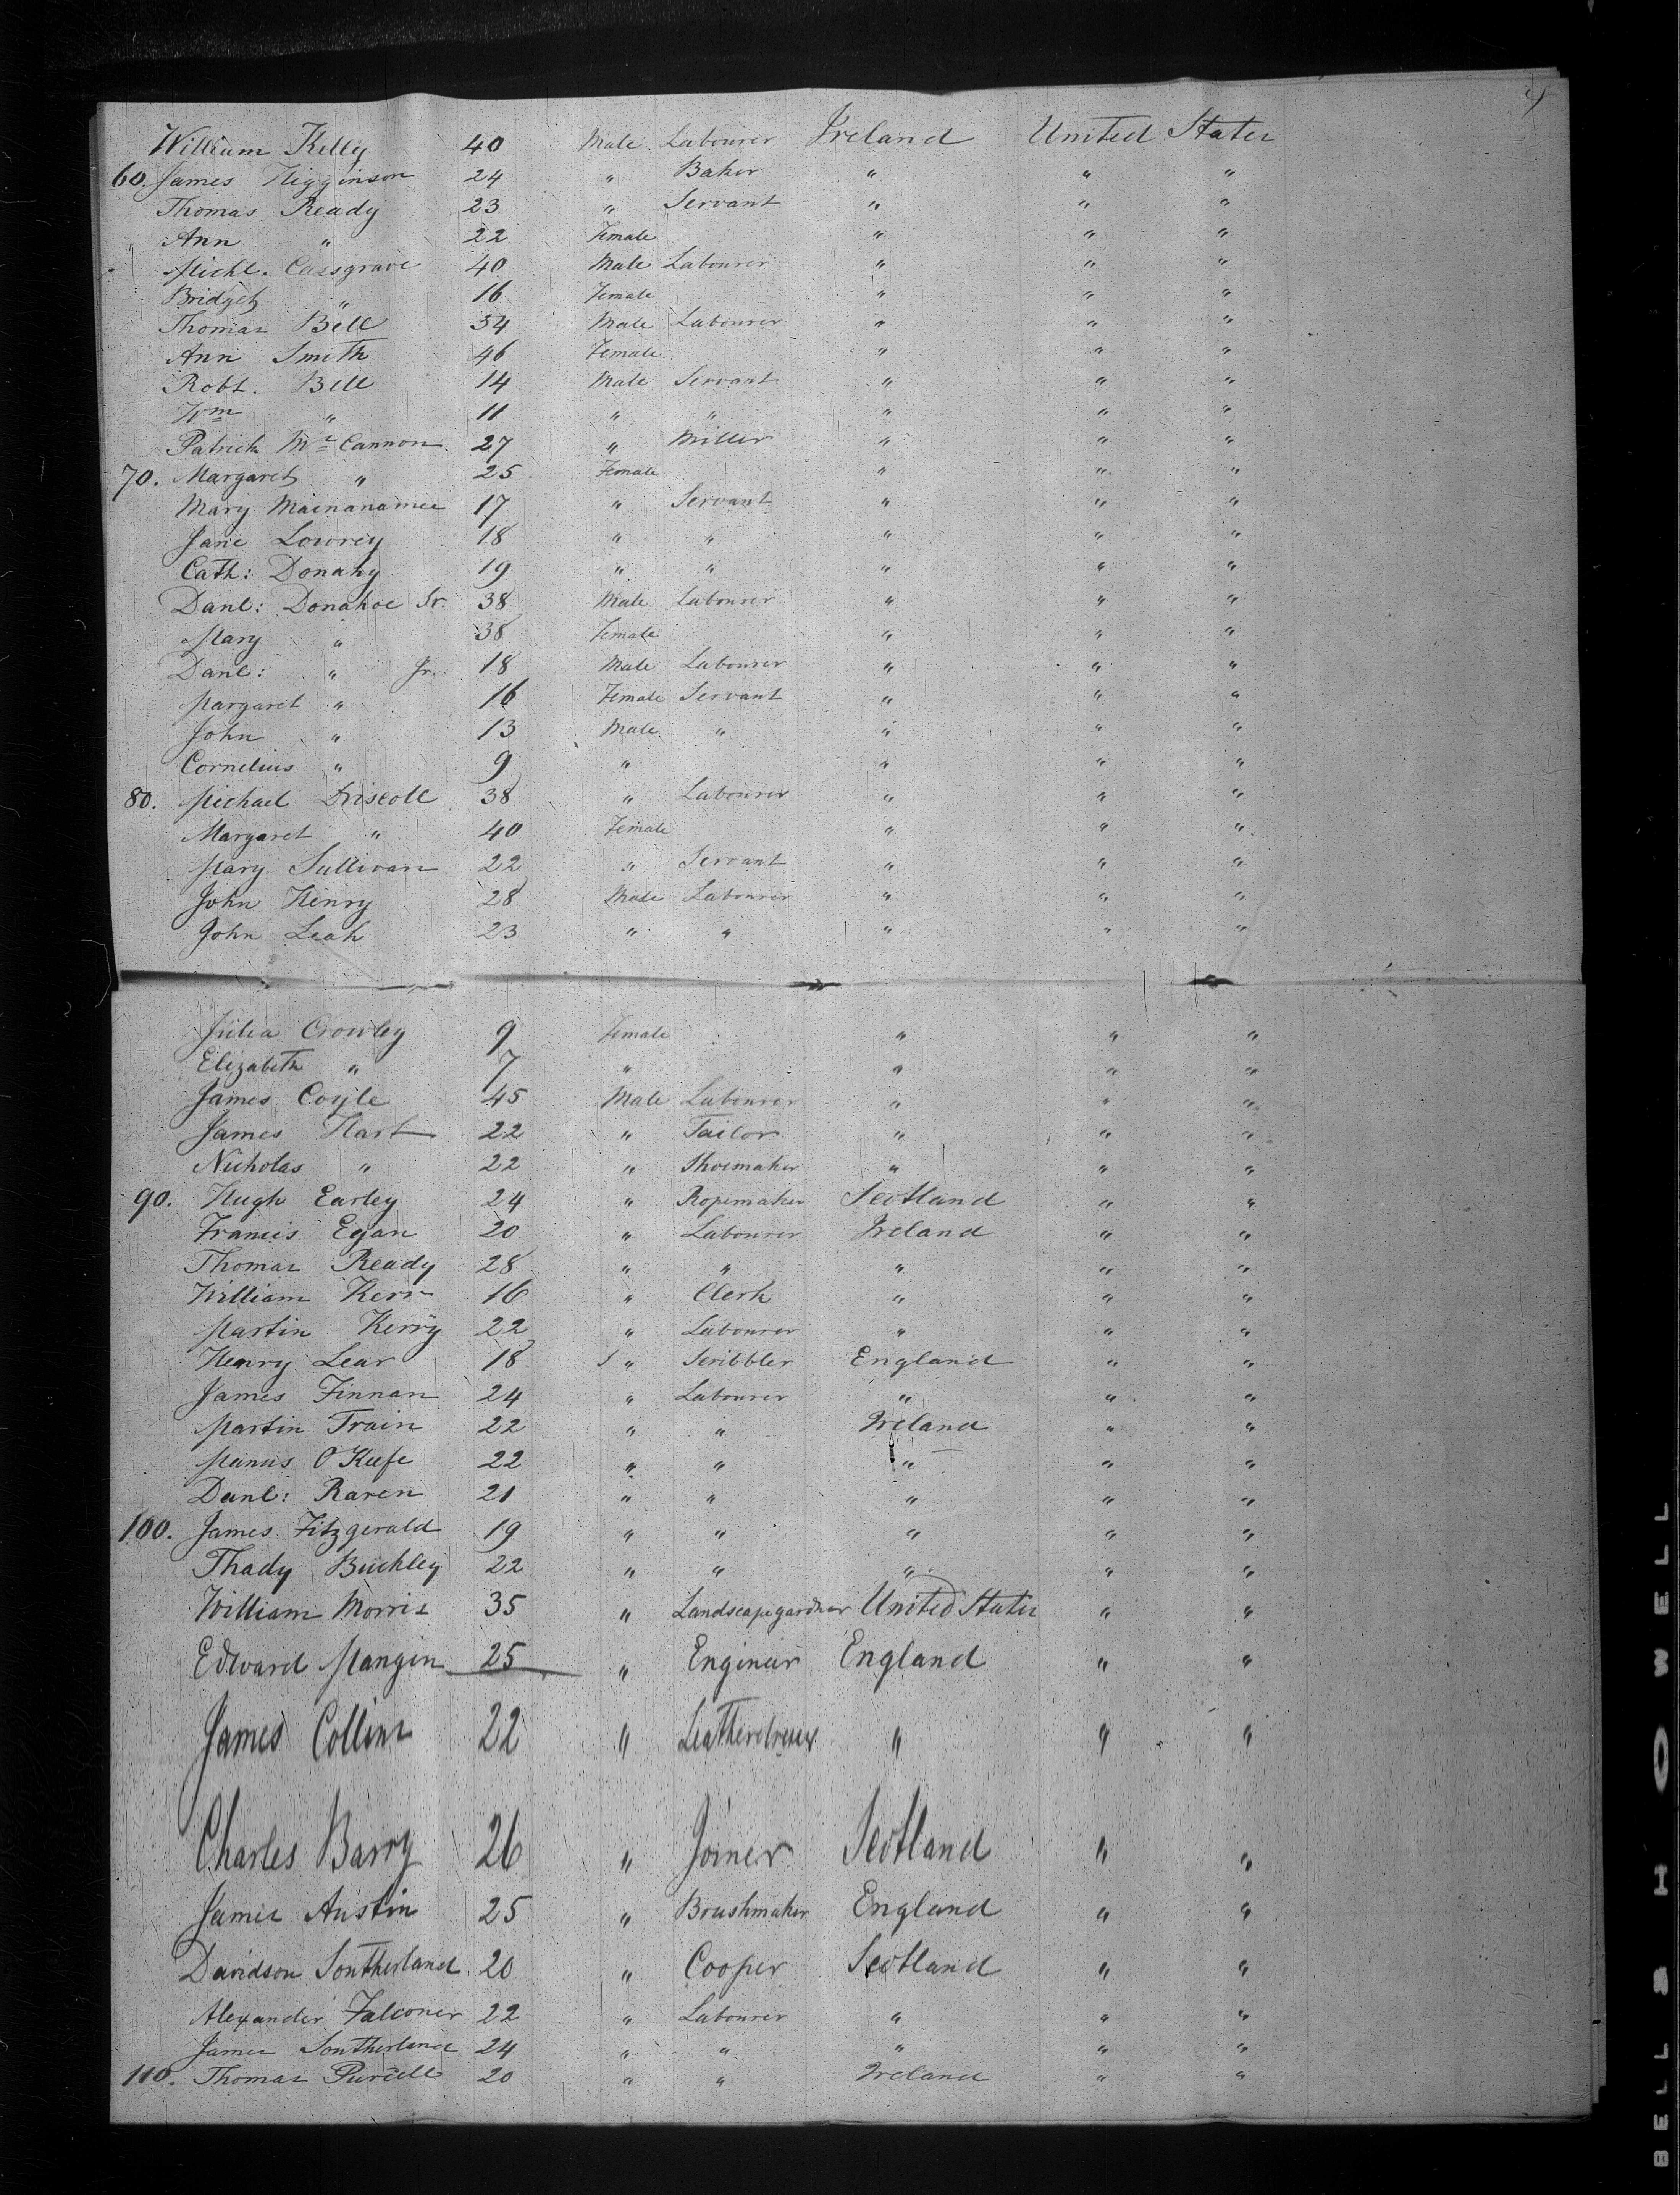 William Kelly 40 Male Labourer Ireland United States
60. James Higginson 24 " Baker " " "
Thomas Ready 23 " Servant " " "
Ann " 22 Female " " "
Michl. Cassgrave 40 Male Labourer " " "
Bridget " 16 Female " " "
Thomas Bell 54 Male Labourer " " "
Ann Smith 46 Female " " "
Robt. Bell 14 Male Servant " " "
Wm " 11 " " " " "
Patrick Mc Cannon 27 " Miller " " "
70. Margaret " 25 Female " " "
Mary Mainanamie 17 " Servant " " "
Jane Lowrey 18 " " " " "
Cath: Donahy 19 " " " " "
Danl: Donahoe Sr. 38 Male Labourer " " "
Mary " 38 Female " " "
Danl: " Jr. 18 Male Labourer " " "
Margaret " 16 Female Servant " " "
John " 13 Male " " " "
Cornelius " 9 " " " "
80. Michael Driscoll 38 " Labourer " " "
Margaret " 40 Female " " "
Mary Sullivan 22 " Servant " " "
John Henry 28 Male Labourer " " "
John Leah 23 " " " " "
Julia Crowley 9 Female " " "
Elizabeth " 7 " " " "
James Coyle 45 Male Labourer " " "
James Hart 22 " Tailor " " "
Nicholas " 22 " Shoemaker " " "
90. Hugh Earley 24 " Ropemaker Scotland " "
Francis Egan 20 " Labourer Ireland " "
Thomas Ready 28 " " " " "
William Kerr 16 " Clerk " " "
Martin Kerry 22 " Labourer " " "
Henry Lear 18 " Scribbler England " "
James Finnan 24 " Labourer " " "
Martin Train 22 " " Ireland " "
Manus O'Keefe 22 " " " " "
Danl: Raren 21 " " " " "
100. James Fitzgerald 19 " " " " "
Thady Buckley 22 " " " " "
William Morris 35 " Landscapegardner United States " "
Edward Mangin 25 " Engineer England " "
James Collins 22 " Leatherdresser " " "
Charles Barry 26 " Joiner Scotland " "
James Austin 25 " Brushmaker England " "
Davidson Southerland 20 " Cooper Scotland " "
Alexander Falconer 22 " Labourer " " "
James Southerland 24 " " " " "
110. Thomas Purcell 20 " " Ireland " "
BELL & HOWELL